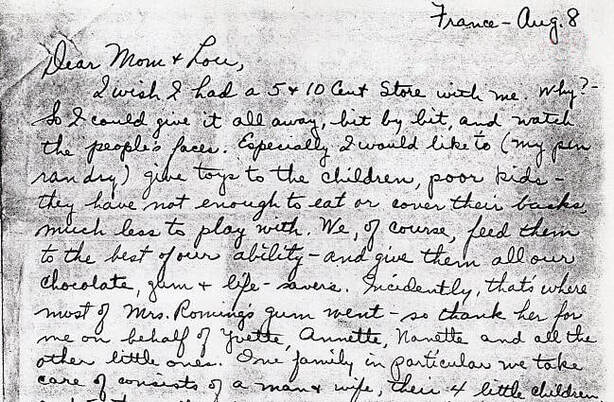 France - Aug. 8
Dear Mom & Lou,
I wish I had a 5 & 10 Cent Store with me. Why? -
So I could give it all away, bit by bit, and watch
the people's faces. Especially I would like to (my pen
ran dry) give toys to the children, poor kids -
they have not enough to eat or cover their backs,
much less to play with. We, of course, feed them
to the best of our ability - and give them all our
chocolate, gum & life-savers. Incidently, that's where
most of Mrs. Roming's gum went - so thank her for
me on behalf of Yvette, Annette, Nanette and all the
other little ones. One family in particular we take
care of consists of a man & wife, their 4 little children